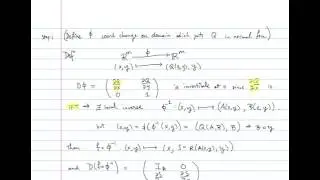 step 1 (Define φ coord change on domain which puts Q in normal form)
Def ℝᵐ —φ→ ℝᵐ
(x,y) ⟼ (Q(x,y), y)
Dφ = [ ∂Q/∂x ∂Q/∂y ; 0 1 ] is invertible at 0 since ∂Q/∂x is
⇒ ∃ local inverse φ⁻¹ (x,y) ⟼ (A(x,y), B(x,y))
but (x,y) = φ(φ⁻¹(x,y)) = (Q(A,B), B) ⇒ B=y
then f∘φ⁻¹ (x,y) ⟼ (x, S = R(A(x,y), y))
and D(f∘φ⁻¹) = [ I 0